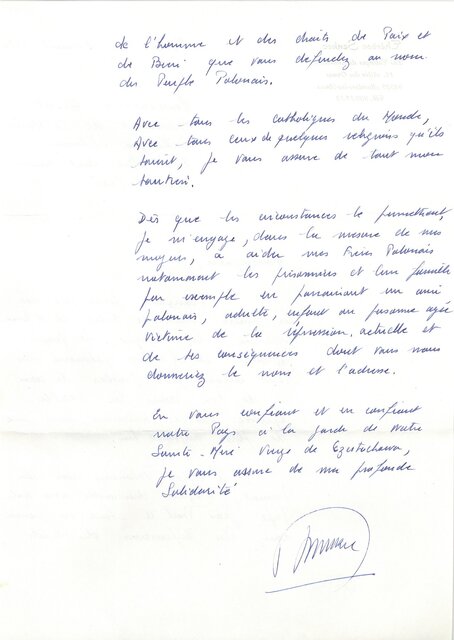 de l'homme et des droits de Paix et
de Bien que vous défendez au nom
du Peuple Polonais.
Avec tous les catholiques du Monde,
Avec tous ceux de quelques religions qu'ils
soient, je vous assure de tout mon
soutien.
Dès que les circonstances le permettront,
je m'engage, dans la mesure de mes
moyens, à aider mes Frères Polonais
notamment les prisonniers et leur famille
par exemple en parrainant un ami
polonais, adulte, enfant ou personne agée
victime de la répression actuelle et
de ses conséquences dont vous nous
donneriez le nom et l'adresse.
En vous confiant et en confiant
votre Pays à la garde de Notre
Sainte-Mère Vierge de Czestochowa,
je vous assure de ma profonde
Solidarité